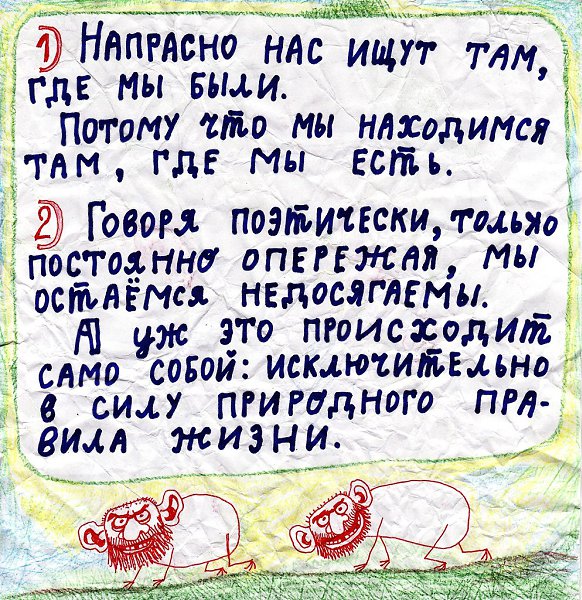 1) Напрасно нас ищут там,
где мы были.
Потому что мы находимся
там, где мы есть.
2) Говоря поэтически, только
постоянно опережая, мы
остаёмся недосягаемы.
А уж это происходит
само собой: исключительно
в силу природного пра-
вила жизни.